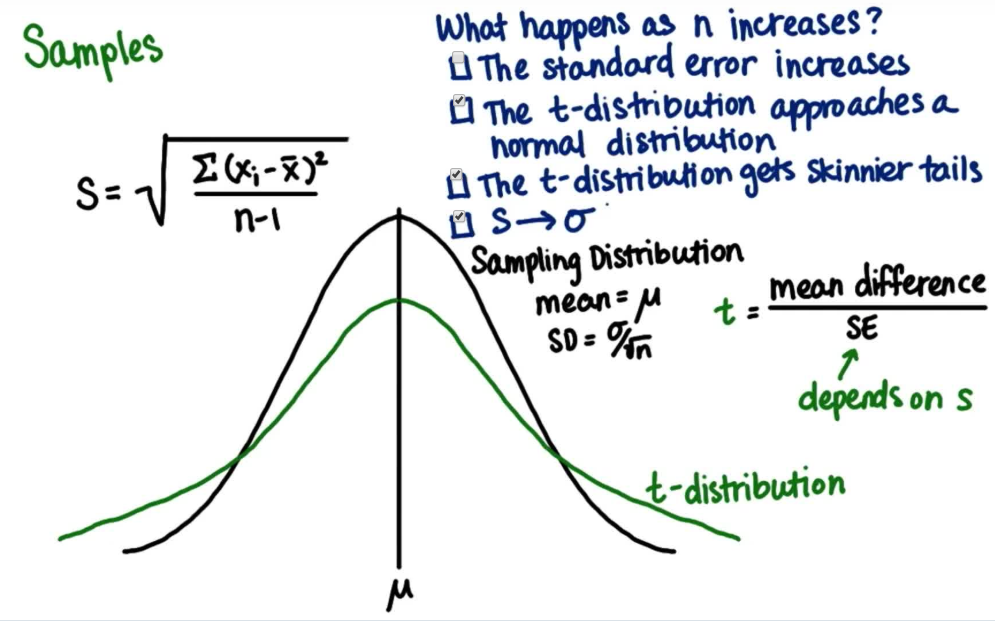 Samples
What happens as n increases?
The standard error increases
The t-distribution approaches a
normal distribution
The t-distribution gets skinnier tails
S→σ
S = √(Σ(xᵢ-x̄)²/n-1)
Sampling Distribution
mean = μ
SD = σ/√n
t = mean difference
SE
depends on s
t-distribution
μ